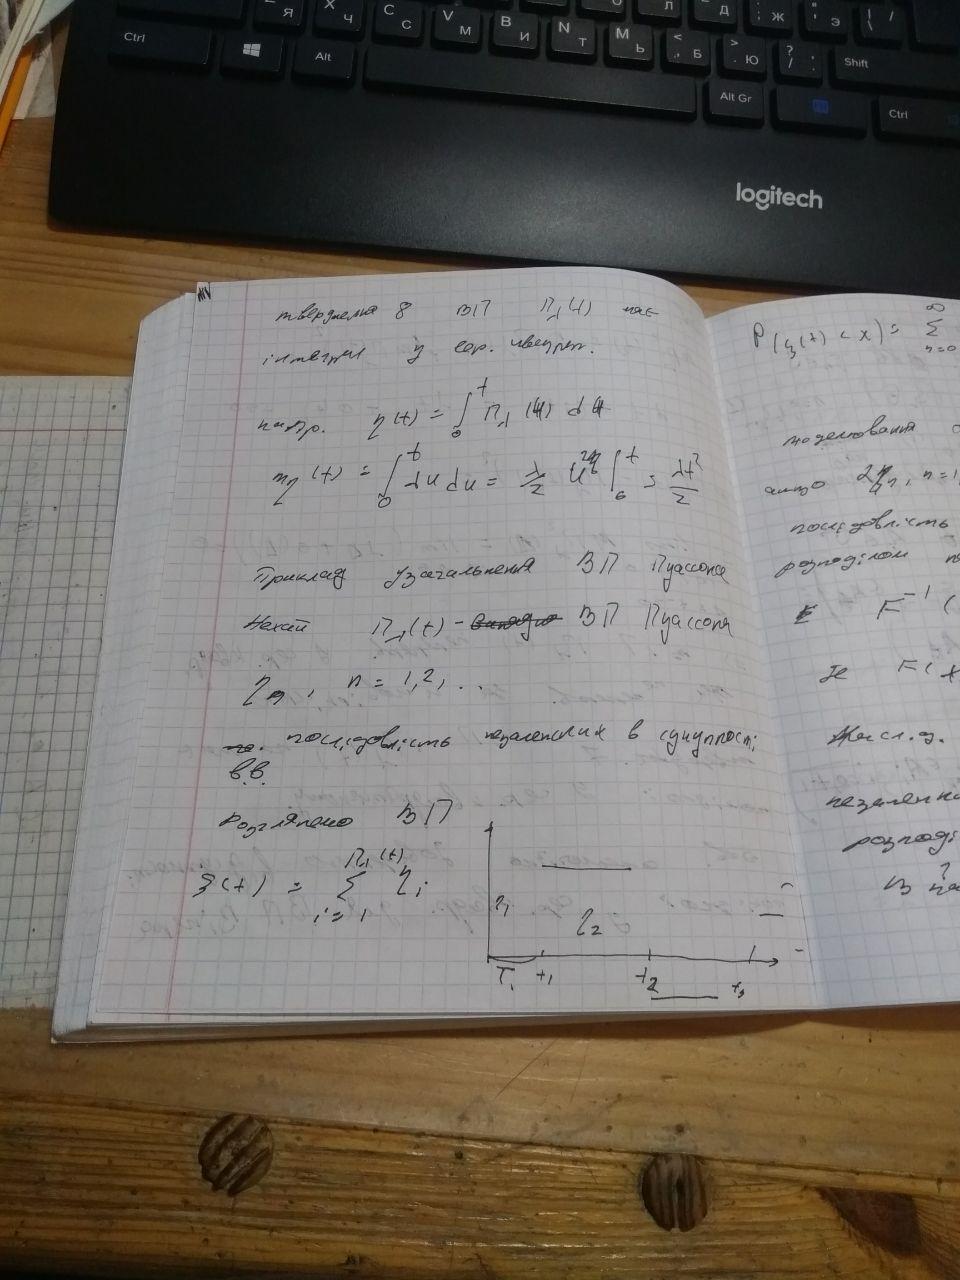 Ctrl
Alt
Я
X Ч
C С
V М
B И
N Т
M Ь
< , Б
> . Ю
? / .
Shift
Alt Gr
Ctrl
logitech
твердження 8 ВП Π_λ(u) має
інтеграл у сер. квадрат.
напр. η(t) = ∫_0^t Π_λ(u) du
m_η(t) = ∫_0^t λu du = λ/2 u² |_0^t = λt²/2
Приклад узагальнення ВП Пуассона
Нехай Π_λ(t) - ВП Пуассона
η_n, n = 1, 2, ...
послідовність незалежних в сукупності
в.в.
розглянемо ВП
ξ(t) = Σ_{i=1}^{Π_λ(t)} η_i
η_1
η_2
T_1 t_1 t_2 t_3
P(ξ(t) < x) = Σ_{n=0}^∞
моделювання
η_n, n = 1,
послідовність
розподілом
F^{-1}(
де F(x
незалежн
розподі